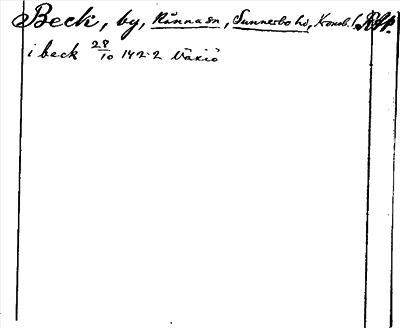 Beck, by, Rännasn, Sunnerbo hd, Kronob. l.
i beck 28/10 1422 Växiö